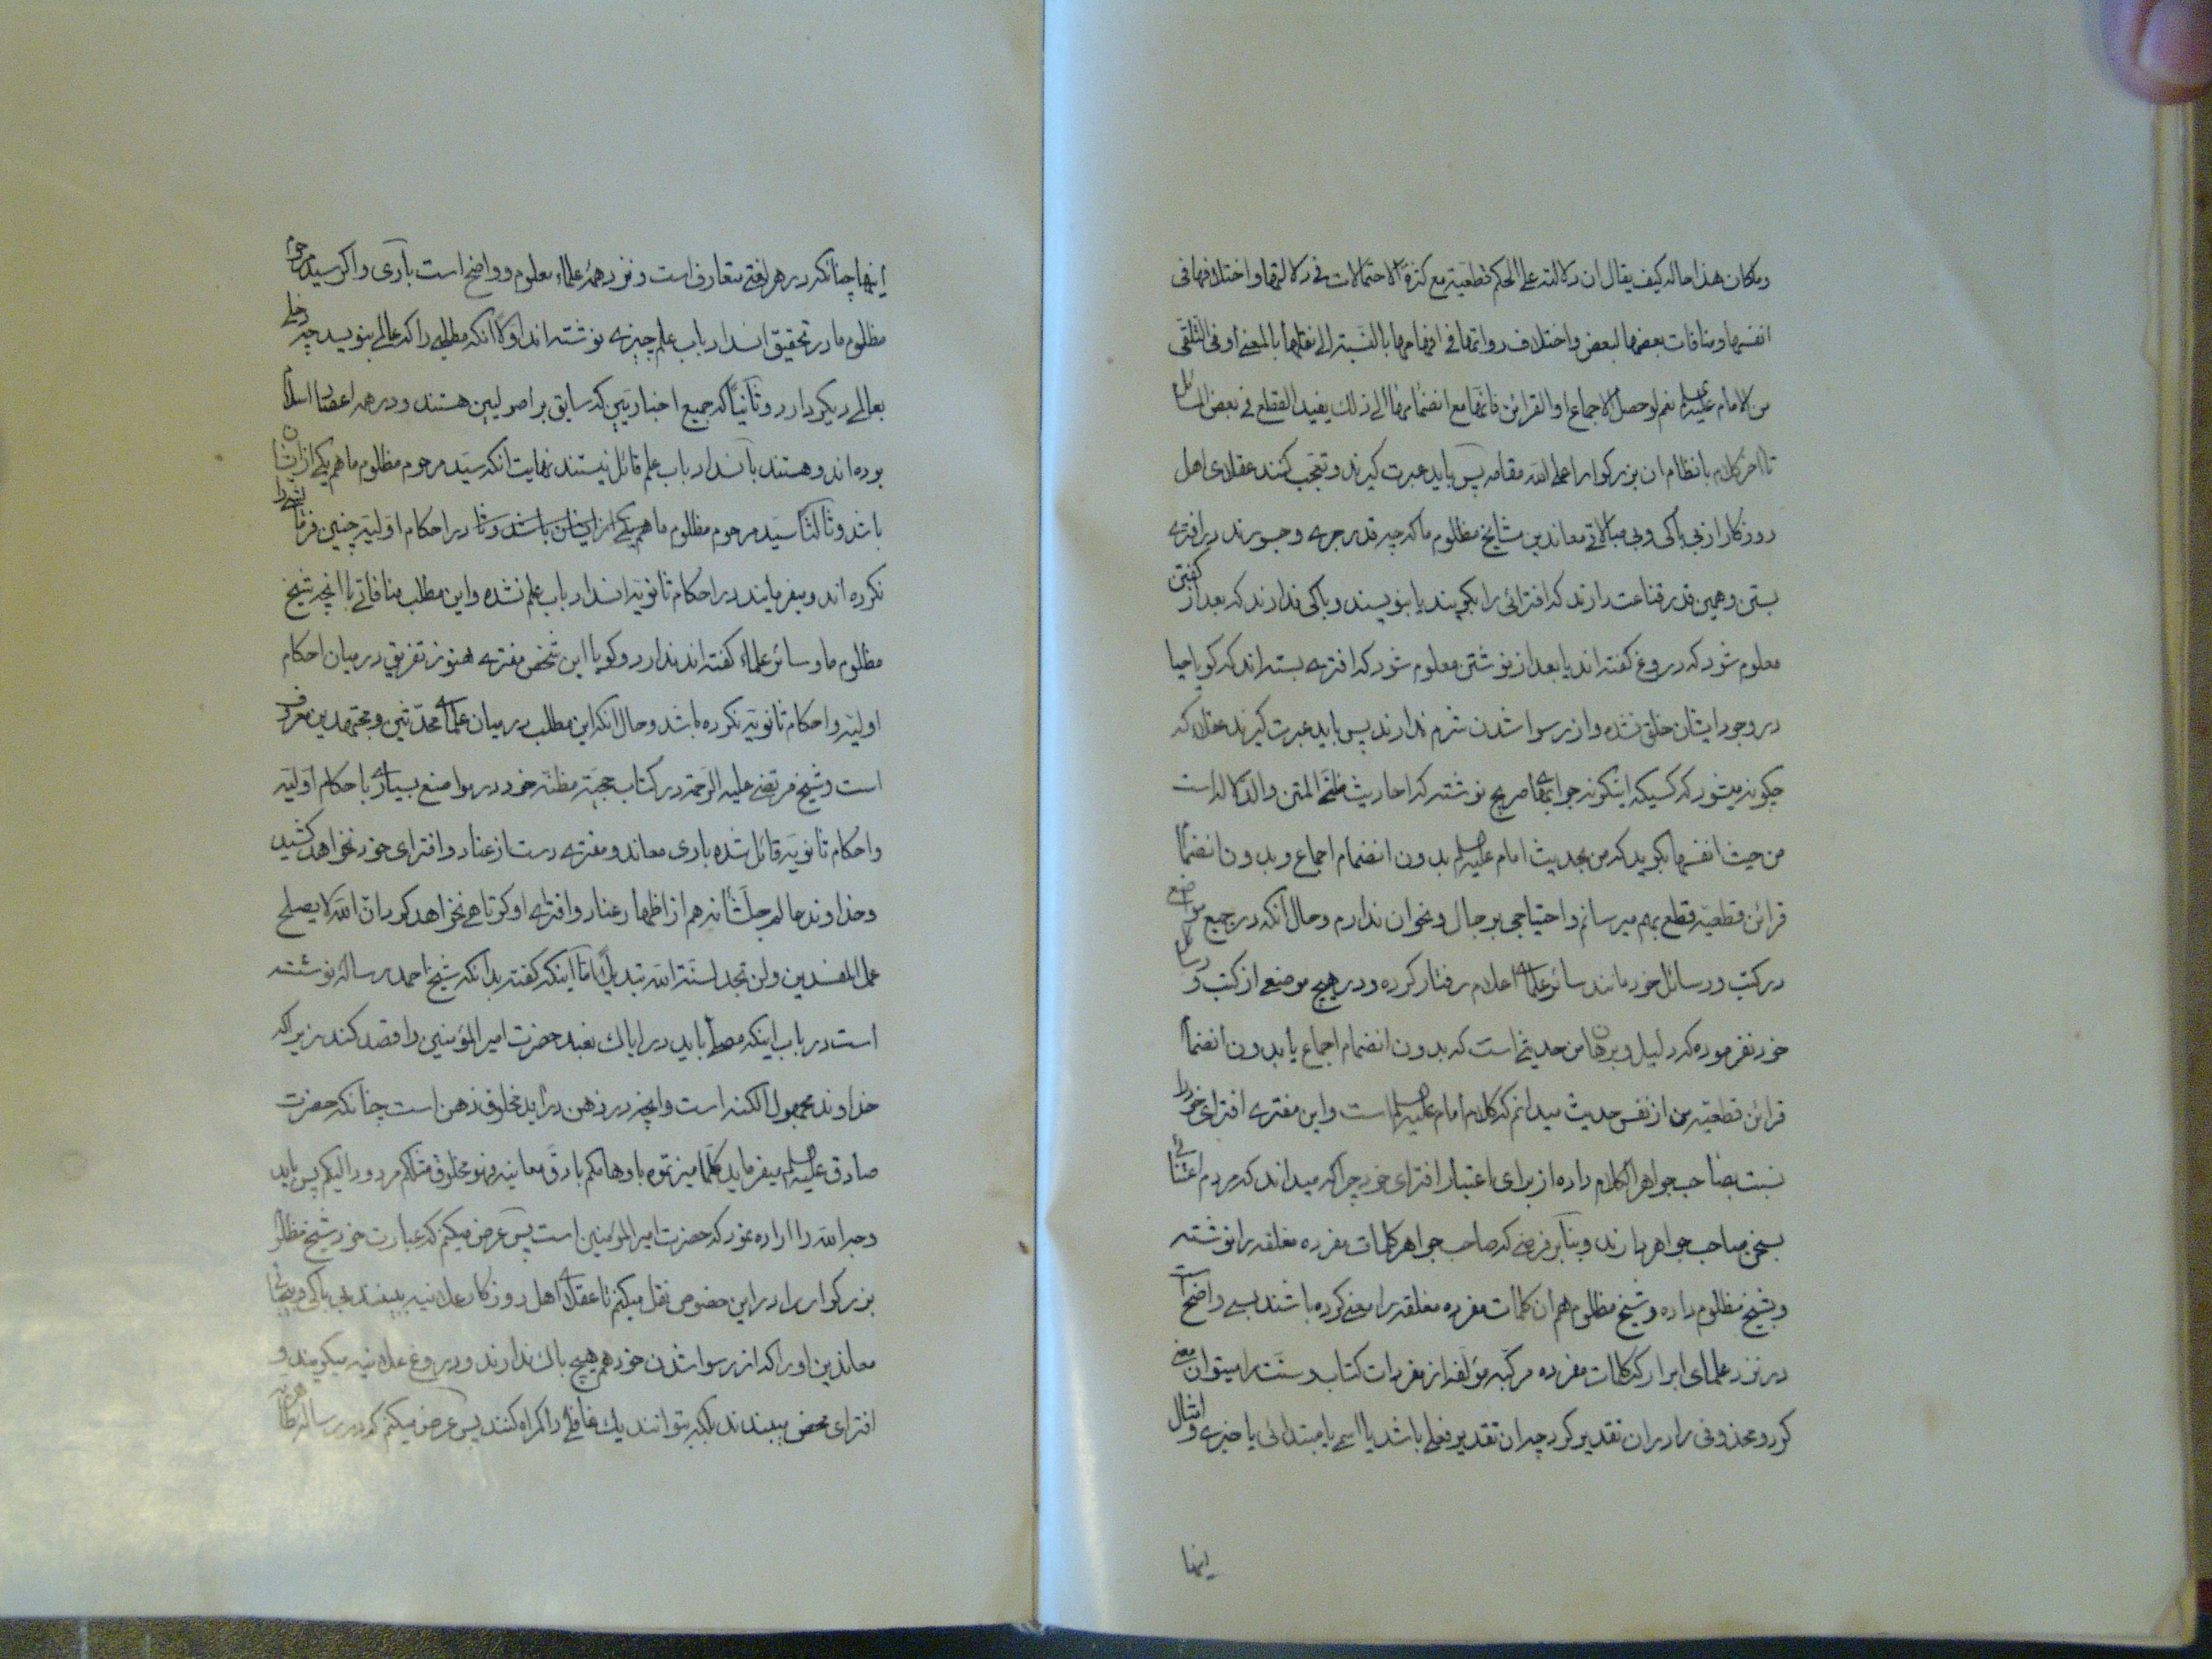 وماکان هذا حاله کیف یقال ان دلالته علی الحکم قطعیّة مع کثرة الاحتمالات فی دلالتها و اختلافها فی
انفسها و منافات بعضها لبعض و اختلاف رواتها فی افهامها بالنسبة الی نقلها بالمعنی او فی التلقّی
من الامام علیه السلم نعم لو حصل الاجماع او القرائن فانّها مع انضمامها الی ذلك یفید القطع فی بعض المسائل
تا اخر کلام با نظام ان بزرکوار اعلی الله مقامه پس باید عبرت کیرند و تعجّب کنند عقلای اهل
روزکار از بی باکی و بی مبالاتی معاندین مشایخ مظلوم ما که چه قدر جری و جسورند در افتری
بستن و همین قدر قناعت دارند که افترائی را بکویند یا بنویسند و باکی ندارند که بعد از کفتن
معلوم شود که دروغ کفته اند یا بعد از نوشتن معلوم شود که افتری بسته اند که کویا حیا
در وجود ایشان خلق نشده و از رسوا شدن شرم ندارند پس باید عبرت کیرند عقلا که
چکونه میشود که کسیکه اینکونه جوابهای صریح نوشته که احادیث ظنّی المتن والدلالة است
من حیث انفسها بکوید که من بحدیث امام علیه السلم بدون انضمام اجماع و بدون انضمام
قرائن قطعیّه قطع بهم میرسانم و احتیاجی برجال و نحوان ندارم و حال انکه در جمیع مواضع
در کتب و رسائل خود مانند سائر علمای اعلام رفتار کرده و در هیچ موضعی از کتب و رسائل
خود نفرموده که دلیل و برهان من حدیثی است که بدون انضمام اجماع یا بدون انضمام
قرائن قطعیّه من از نفس حدیث میدانم که کلام امام علیه السلم است و این مفتری افترای خود را
نسبت بصاحب جواهر الکلام داده از برای اعتبار افترای خود چرا که میداند که مردم اعتنائی
بسخن صاحب جواهر دارند و بنابر فرضی که صاحب جواهر کلمات مفرده مغلقه را نوشته
و بشیخ مظلوم داده و شیخ مظلوم هم ان کلمات مفرده مغلقه را معنی کرده باشند بسی واضح است
در نزد علمای ابرار که کلمات مفرده مرکّبه مؤلفه از مفردات کتاب و سنّت را میتوان معنی
کرد و محذوفی را در ان تقدیر کرد چه ان تقدیر فعلی باشد یا اسمی یا مبتدائی یا خبری و امثال
اینها
اینها چنانکه در هر لغتی متعارف است و نزد همهٔ علماء معلوم و واضح است باری و اکر سید مرحوم
مظلوم ما در تحقیق انسداد باب علم چیزی نوشته اند اوّلا انکه مطلبی را که عالمی بنویسد چه دخلی
بعالمی دیکر دارد و ثانیاً که جمیع اخباریین که سابق بر اصولیین هستند و در همه اعصار اسلام
بوده اند و هستند بانسداد باب علم قائل نیستند نهایت انکه سیّد مرحوم مظلوم ما هم یکی از ایشان
باشد و ثالثاً سیّد مرحوم مظلوم ما هم یکی از ایشان باشد و ثا در احکام اوّلیّه چنین فرمایشی را
نکرده اند و میفرمایند در احکام ثانویّه انسداد باب علم نشده و این مطلب منافاتی با انچه شیخ
مظلوم ما و سائر علماء کفته اند ندارد و کویا این شخص مفتری هنوز تفریق در میان احکام
اولیّه و احکام ثانویّه نکرده باشد و حال انکه این مطلب در میان علمای محدّثین و مجتهدین معروف
است و شیخ مرتضی علیه الرّحمة در کتاب حجیّة مظنّه خود در مواضع بسیاری با حکام اوّلیّه
و احکام ثانویّه قائل شده باری معاند و مفتری دست از عناد و افترای خود نخواهد کشید
و خداوند عالم جلّ شأنه هم از اظهار عناد و افترای او کوتاهی نخواهد کرد انّ الله لا یصلح
عمل المفسدین و لن تجد لسنّة الله تبدیلاً امّا اینکه کفته بدانکه شیخ احمد رسالهٔ نوشته
است در باب اینکه مصلی باید در ایاك نعبد حضرت امیر المؤمنین را قصد کند زیرا که
خداوند مجهول الکنه است و انچه در ذهن دراید مخلوق ذهن است چنانکه حضرت
صادق علیه السلم میفرماید کلّما میزتموه باوهامکم بادقّ معانیه فهو مخلوق مثلکم مردود الیکم پس باید
وجه الله را اراده نمود که حضرت امیر المؤمنین است پس عرض میکنم که عبارت خود شیخ مظلوم
بزرکوار را در این خصوص نقل میکنم تا عقلای اهل روزکار علانیه ببینند بی باکی و بیحیائی
معاندین او را که از رسوا شدن خود هم هیچ باك ندارند و دروغ علانیه میکویند و
افترای محض میبندند بلکه بتوانند یك غافلی را کمراه کنند پس عرض میکنم که در رساله